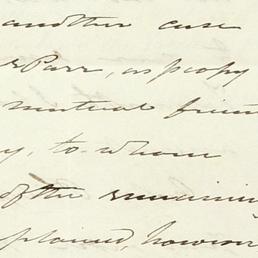 another case
Parr, as proxy
mutual frien
y, to whom
of the remainin
plained, howev